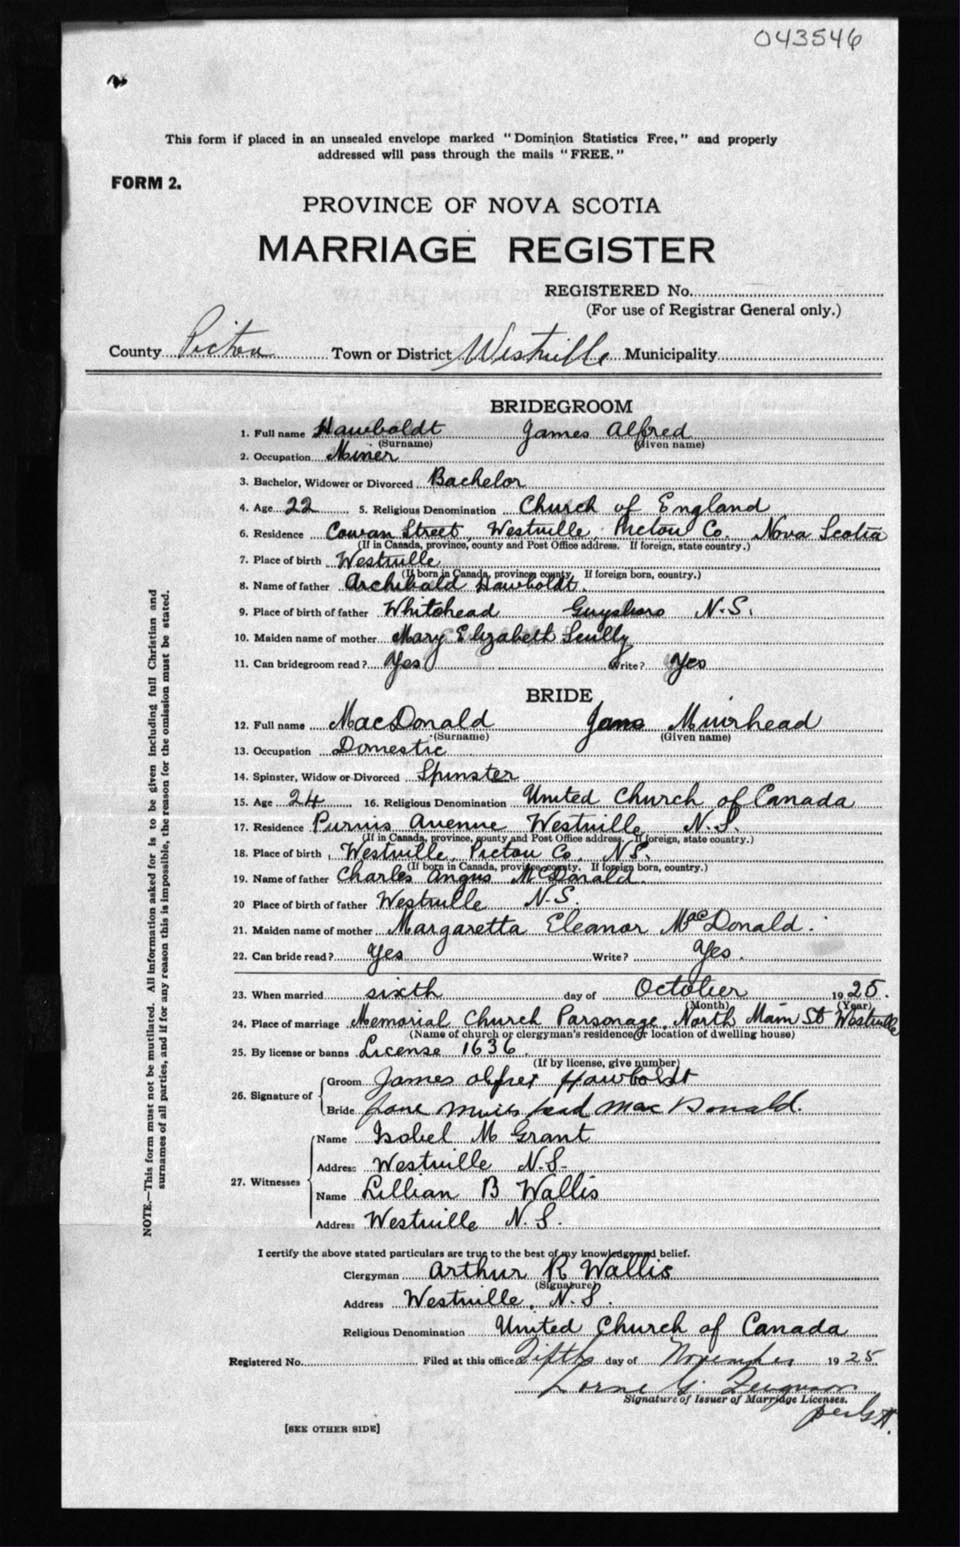 043546
This form if placed in an unsealed envelope marked "Dominion Statistics Free," and properly
addressed will pass through the mails "FREE."
FORM 2.
PROVINCE OF NOVA SCOTIA
MARRIAGE REGISTER
REGISTERED No.
(For use of Registrar General only.)
County Pictou Town or District Westville Municipality
BRIDEGROOM
1. Full name Hawboldt James Alfred
(Surname) (Given name)
2. Occupation Miner
3. Bachelor, Widower or Divorced Bachelor
4. Age 22 5. Religious Denomination Church of England
6. Residence Cowan Street, Westville, Pictou Co. Nova Scotia
(If in Canada, province, county and Post Office address. If foreign, state country.)
7. Place of birth Westville
(If born in Canada, province county. If foreign born, country.)
8. Name of father Archibald Hawboldt.
9. Place of birth of father Whitehead Guysboro N.S.
10. Maiden name of mother Mary Elizabeth Scully
11. Can bridegroom read? Yes Write? Yes
BRIDE
12. Full name MacDonald Jane Muirhead
(Surname) (Given name)
13. Occupation Domestic
14. Spinster, Widow or Divorced Spinster
15. Age 24 16. Religious Denomination United Church of Canada
17. Residence Purvis Avenue Westville N.S.
(If in Canada, province, county and Post Office address. If foreign, state country.)
18. Place of birth Westville, Pictou Co. N.S.
(If born in Canada, province county. If foreign born, country.)
19. Name of father Charles Angus McDonald.
20 Place of birth of father Westville N.S.
21. Maiden name of mother Margaretta Eleanor MacDonald.
22. Can bride read? Yes Write? Yes.
23. When married sixth day of October 1925.
(Month) (Year)
24. Place of marriage Memorial Church Parsonage, North Main St Westville
(Name of church or clergyman's residence or location of dwelling house)
25. By license or banns License 1636
(If by license, give number)
26. Signature of
Groom James Alfred Hawboldt
Bride Jane Muirhead MacDonald.
27. Witnesses
Name Isobel M Grant
Address Westville N.S.
Name Lillian B Wallis
Address Westville N.S.
I certify the above stated particulars are true to the best of my knowledge and belief.
Clergyman Arthur R Wallis
(Signature)
Address Westville, N.S.
Religious Denomination United Church of Canada
Registered No. Filed at this office Fifth day of November 1925
Lorne G. Ferguson
Signature of Issuer of Marriage Licenses.
[SEE OTHER SIDE]
NOTE.—This form must not be mutilated. All information asked for is to be given including full Christian and
surnames of all parties, and if for any reason this is impossible, the reason for the omission must be stated.